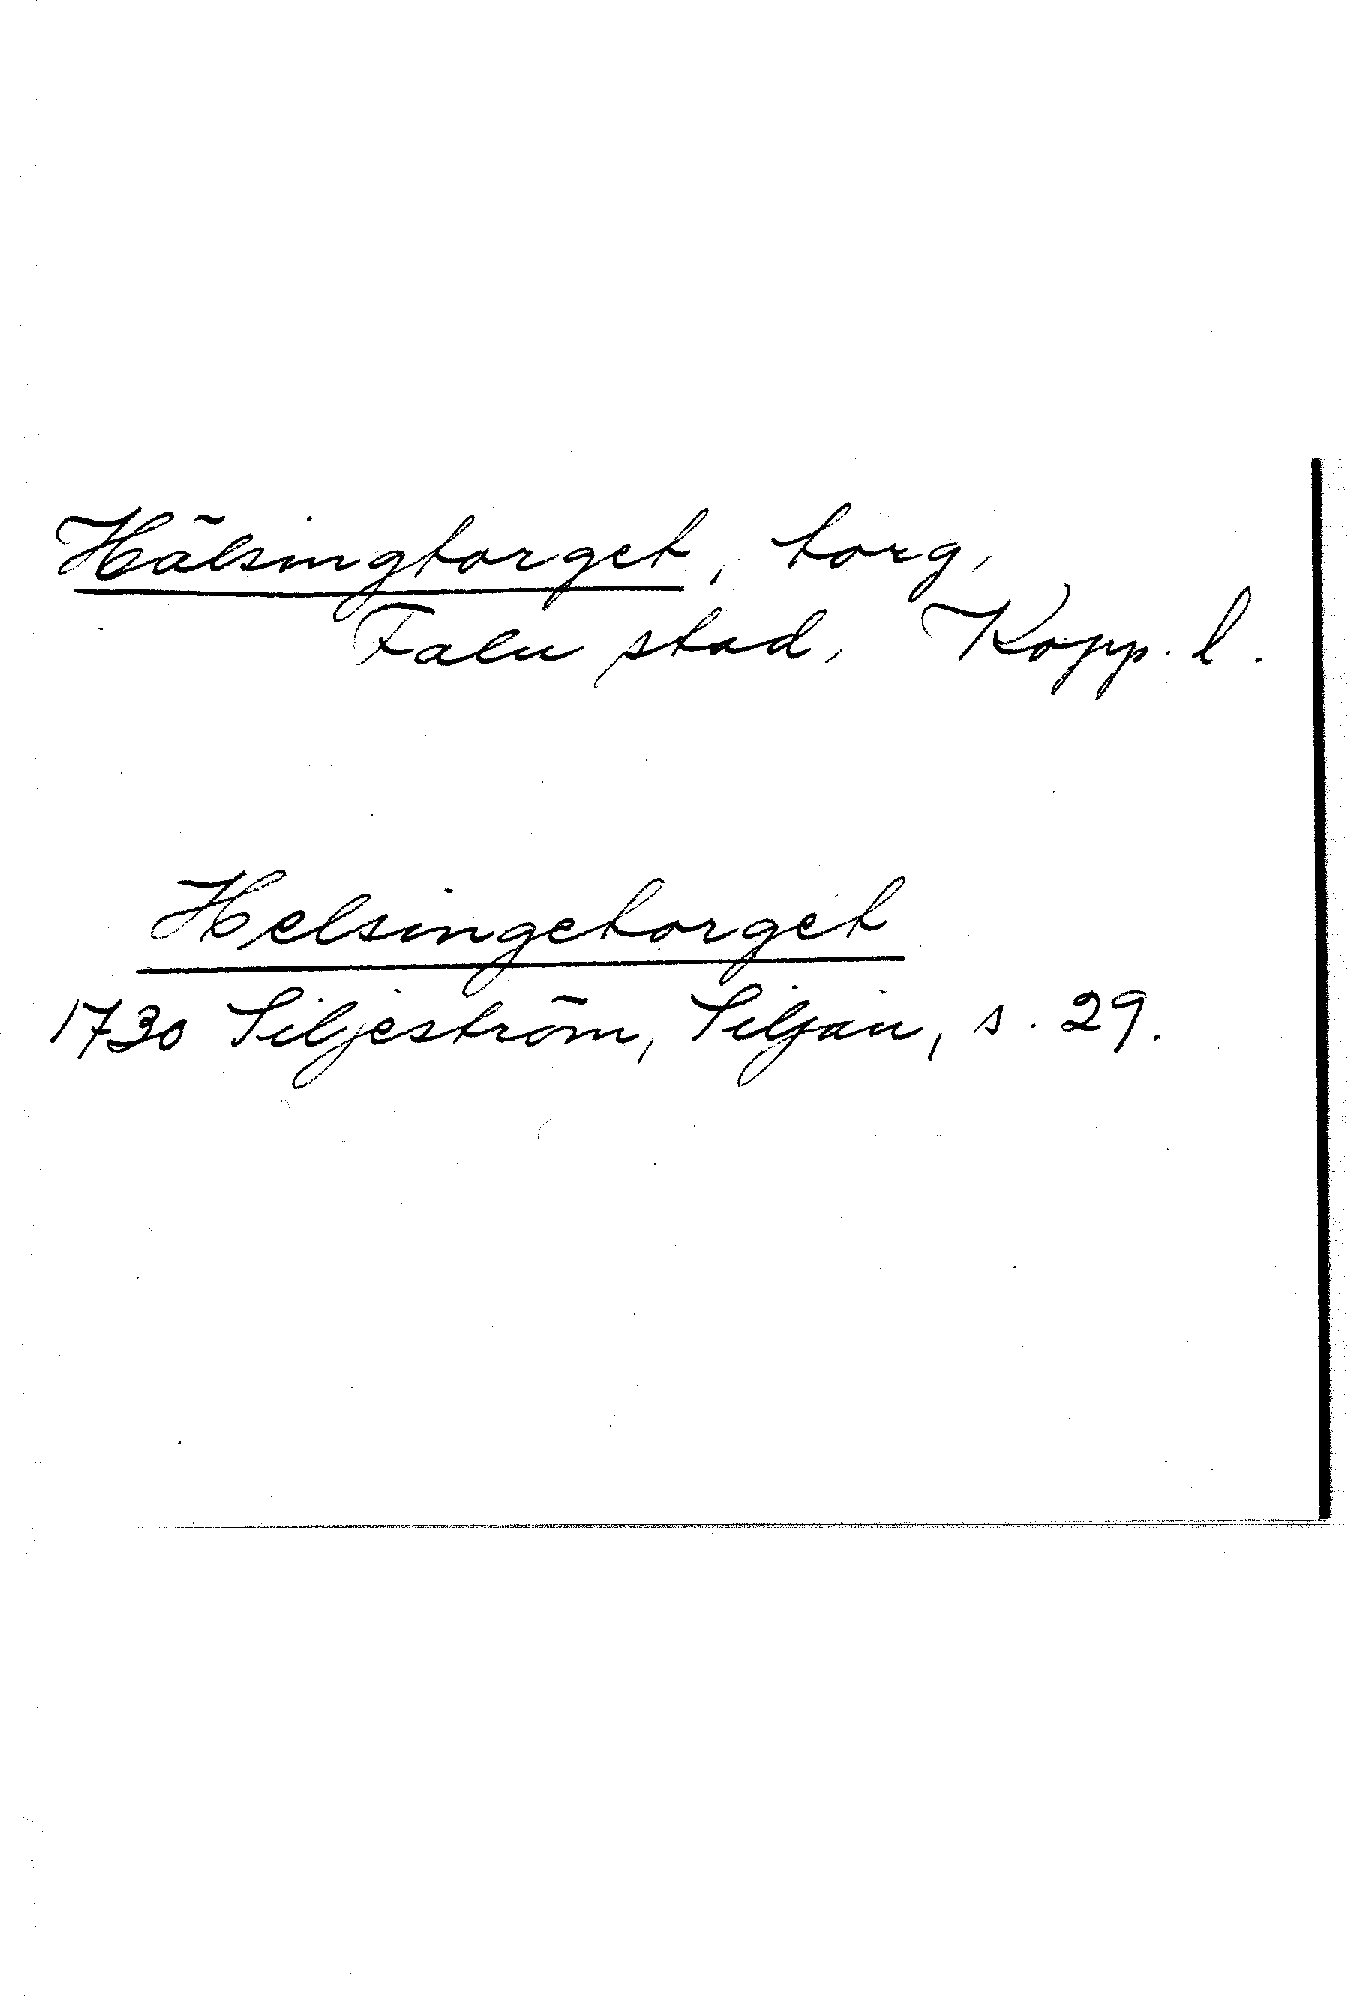 Hälsingtorget, torg,
Falu stad, Kopp. l.
Helsingetorget
1730 Siljeström, Siljan, s. 29.